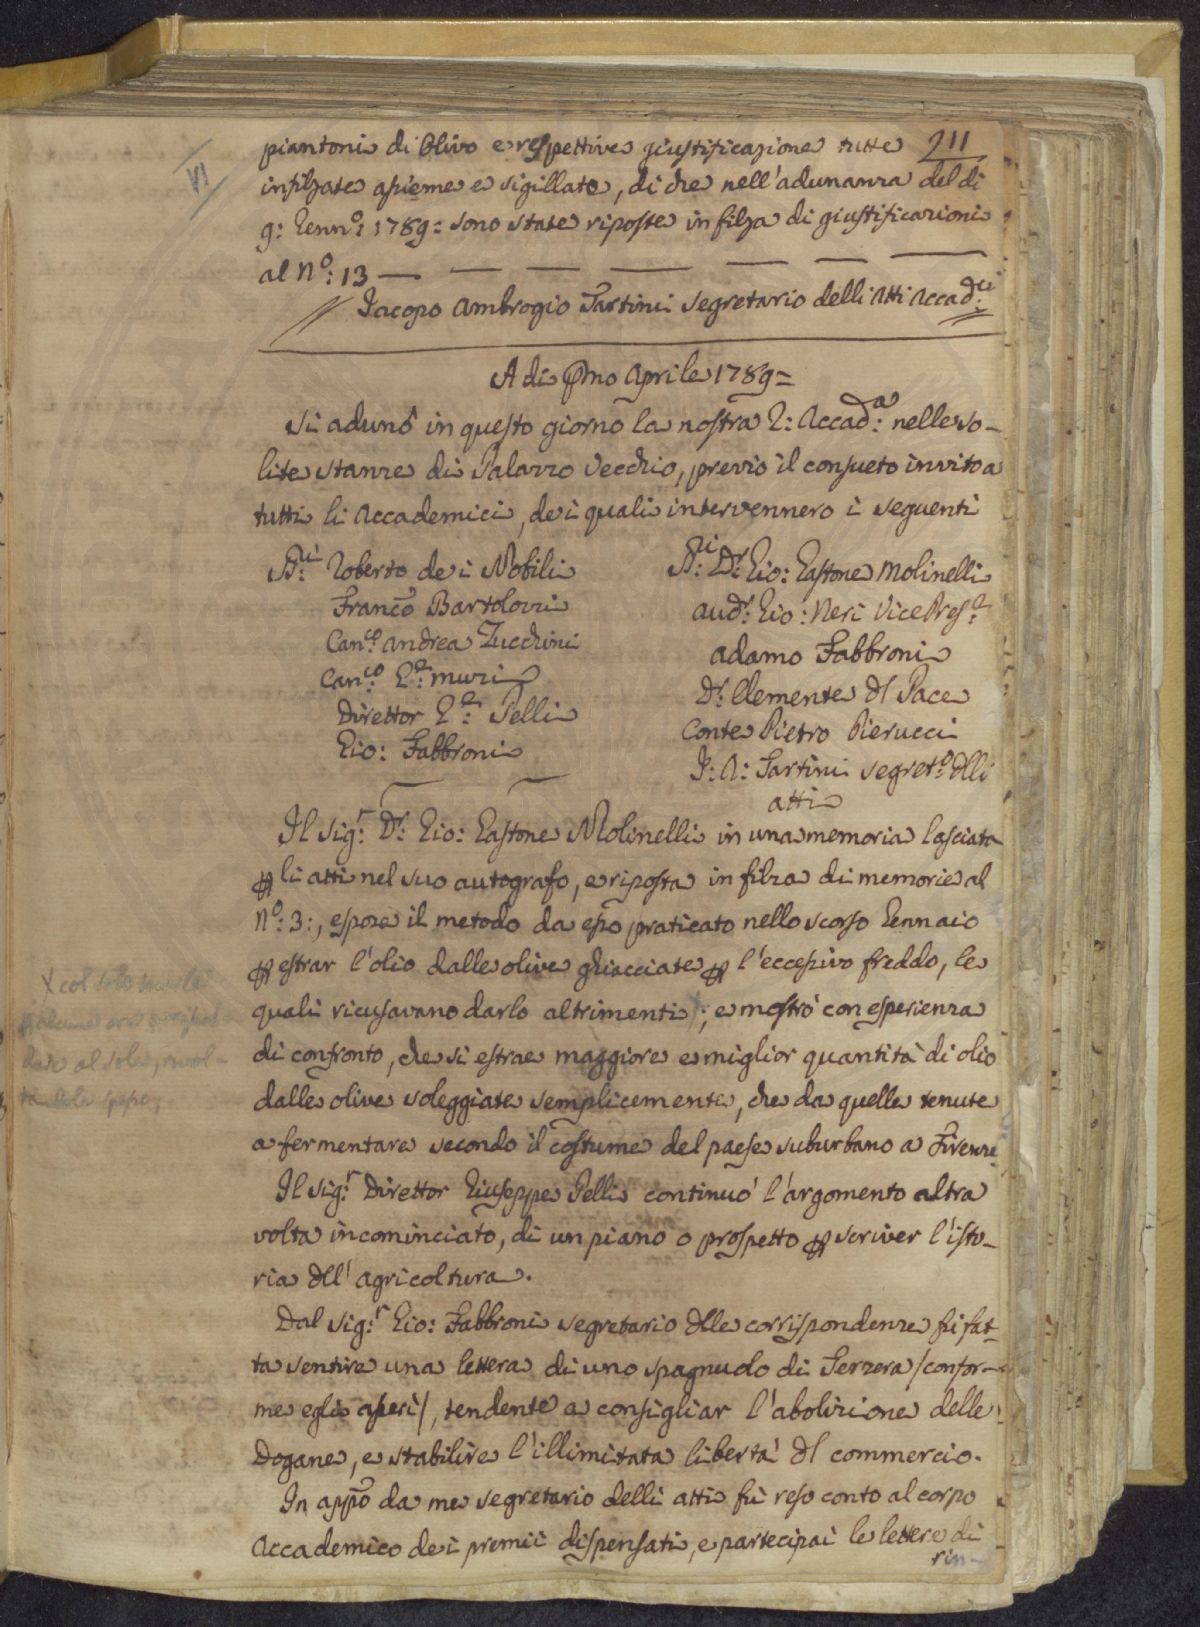 211
VI
piantoni di Olivo e respettive giustificazione tutte
infilzate assieme e sigillate, di che nell'adunanza del di
9: Genn:º 1789= sono state riposte in filza di giustificazioni
al Nº: 13 — — — — — — —
Jacopo Ambrogio Tartini Segretario delli Atti Accad:ci
A di Pmo Aprile 1789=
Si adunò in questo giorno la nostra R: Accad:a nelle so-
lite stanze di Palazzo Vecchio, previo il consueto invito a
tutti li Accademici, dei quali intervennero i seguenti
SS:ri Roberto dei Nobili
Franco Bartolozzi
Can:co Andrea Zucchini
Can:co G:e Muzzi
Direttor G:e Pelli
Gio: Fabbroni
SS:ri D:r Gio: Gastone Molinelli
Aud:r Gio: Neri Vice Pres:e
Adamo Fabbroni
D:r Clemente Dl Pace
Conte Pietro Pierucci
J: A: Tartini Segret:o Dlli
Atti
Il Sig:r D:r Gio: Gastone Molinelli in una memoria lasciata
p li atti nel suo autografo, e riposta in filza di memorie al
Nº: 3:, espose il metodo da esso praticato nello scorso Gennaio
p estrar l'olio dalle olive ghiacciate p l'eccessivo freddo, le
quali ricusavano darlo altrimenti X; e mostrò con esperienza
di confronto, che si estrae maggiore e miglior quantità di olio
dalle olive soleggiate semplicemente, che da quelle tenute
a fermentare secondo il costume del paese suburbano a Firenze
X col solo
al sole,
spesso;
Il Sig:r Direttor Giuseppe Pelli continuò l'argomento altra
volta incominciato, di un piano o prospetto p scriver l'isto-
ria Dll'agricoltura.
Dal Sig:r Gio: Fabbroni Segretario Dlle corrispondenze fù fat-
ta sentire una lettera di uno spagnuolo di /confor-
me egli asserì/, tendente a consigliar l'abolizione delle
Dogane, e stabilire l'illimitata libertà Dl commercio.
In appo da me Segretario delli atti fù reso conto al corpo
Accademico dei premii dispensati, e partecipai le lettere di
rin-